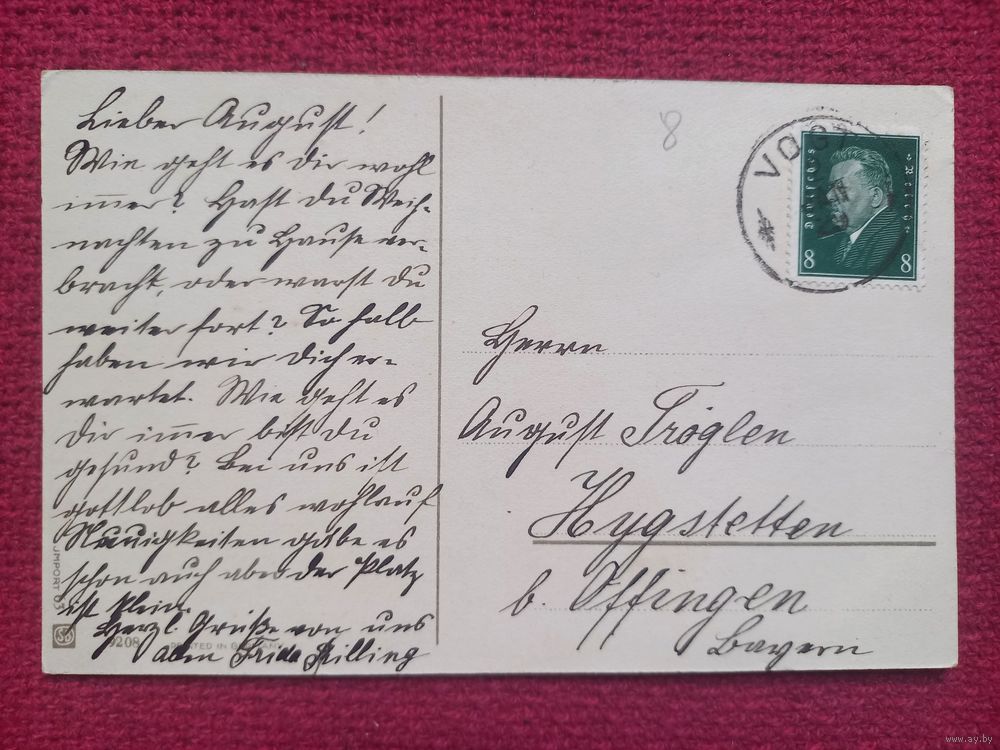 Lieber August!
Wie geht es dir wohl
immer? Hast du Weih-
nachten zu Hause ver-
bracht, oder warst du
weiter fort? So halb
haben wir dich er-
wartet. Wie geht es
dir immer bist du
gesund? Bei uns ist
gottlob alles wohlauf
Neuigkeiten gäbe es
schon auch aber der Platz
ist klein.
Herzl. Grüße von uns
allen Frida Killing
8
VOGT
Deutsches Reich
8 8
Herrn
August Tröglen
Hygstetten
b. Offingen
Bayern
IMPORT
9208
PRINTED IN
www.ay.by